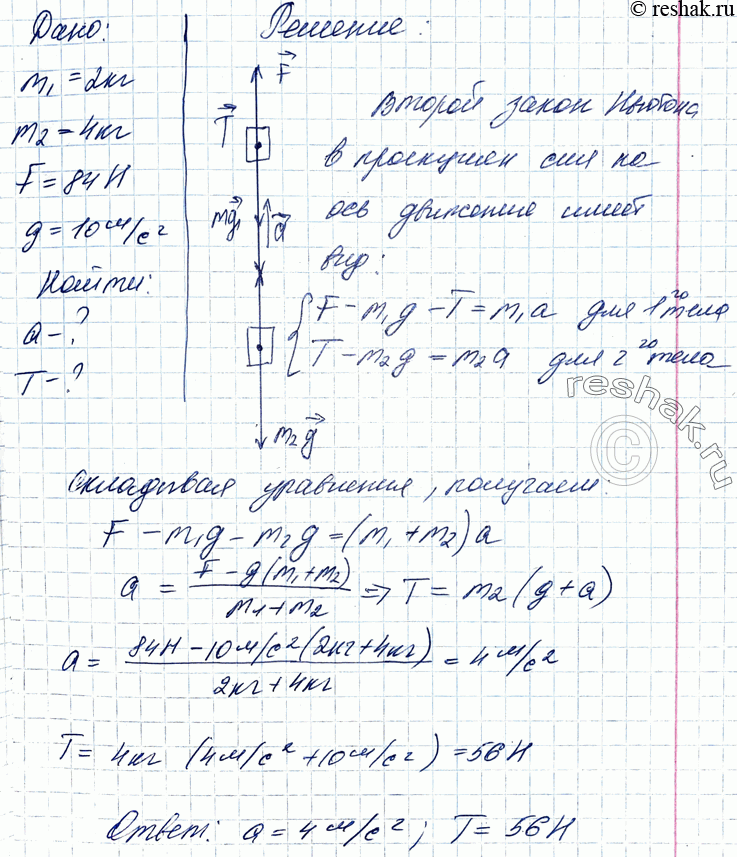 © reshak.ru
Дано:
m₁ = 2кг
m₂ = 4кг
F = 84 Н
g = 10 м/с²
Найти:
a – ?
T – ?
Решение:
F⃗
T⃗
mg⃗₁
a⃗
m₂g⃗
Второй закон Ньютона
в проекциях сил на
ось движение имеет
вид:
{ F – m₁g – T = m₁a для 1го тела
T – m₂g = m₂a для 2го тела
reshak.ru
©
Складывая уравнения, получаем:
F – m₁g – m₂g = (m₁ + m₂) a
a = (F – g(m₁+m₂))/(m₁+m₂) ⇒ T = m₂ (g + a)
a = (84Н – 10м/с² (2кг+4кг))/(2кг+4кг) = 4 м/с²
T = 4кг (4м/с² + 10м/с²) = 56 Н
Ответ: a = 4 м/с²; T = 56 Н